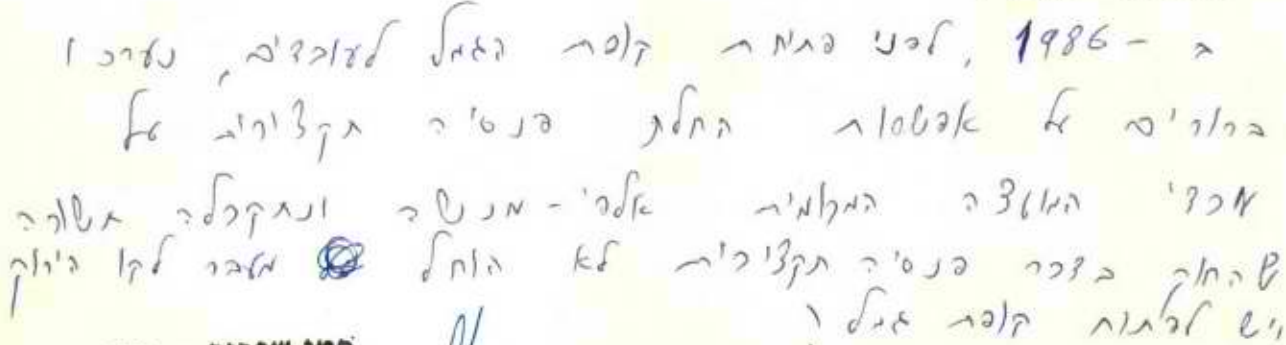 ב - 1986, לפני פתיחת קופת הגמל לעובדים, נערכו
ברורים על אפשרות החלת פנסיה תקציבית על
עובדי המועצה המקומית אלפי-מנשה ונתקבלה תשובה
שהחוק בדבר פנסיה תקציבית לא הוחל מעבר לקו הירוק
ויש לפתוח קופת גמל